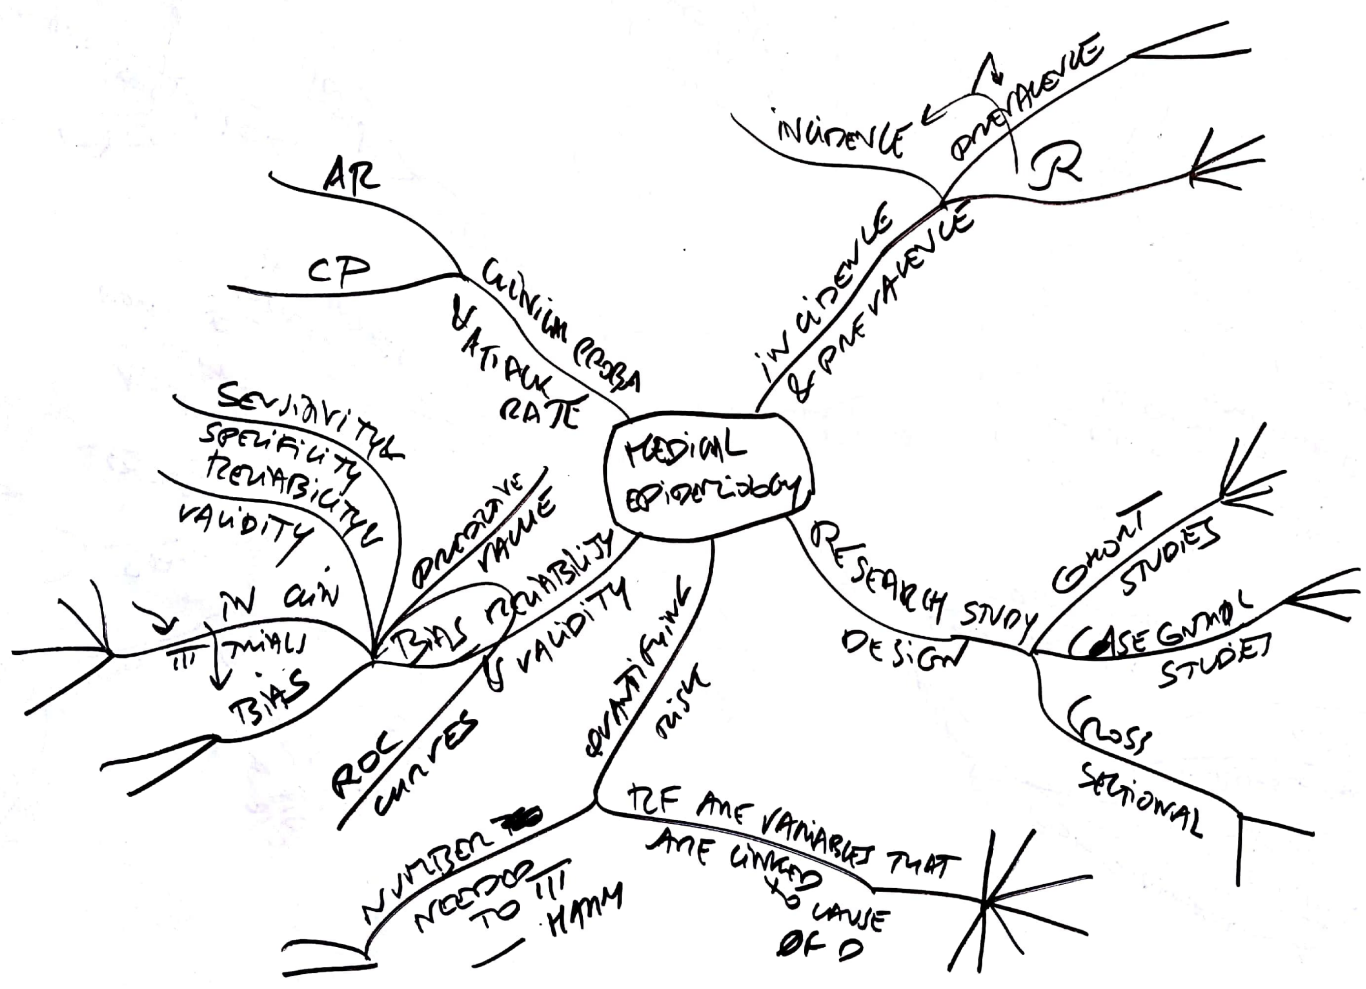 MEDICAL
EPIDEMIOLOGY
INCIDENCE
& PREVALENCE
INCIDENCE
PREVALENCE
R
RESEARCH STUDY
DESIGN
COHORT
STUDIES
CASE CONTROL
STUDIES
CROSS
SECTIONAL
QUANTIFYING
RISK
RF ARE VARIABLES THAT
ARE LINKED
TO CAUSE
OF D
NUMBER
NEEDED
TO
HARM
RELIABILITY
& VALIDITY
PREDICTIVE
VALUE
BIAS
ROC
CURVES
SENSITIVITY &
SPECIFICITY
RELIABILITY &
VALIDITY
IN CLIN
TRIALS
BIAS
CLINICAL PROBA
& ATTACK
RATE
AR
CP